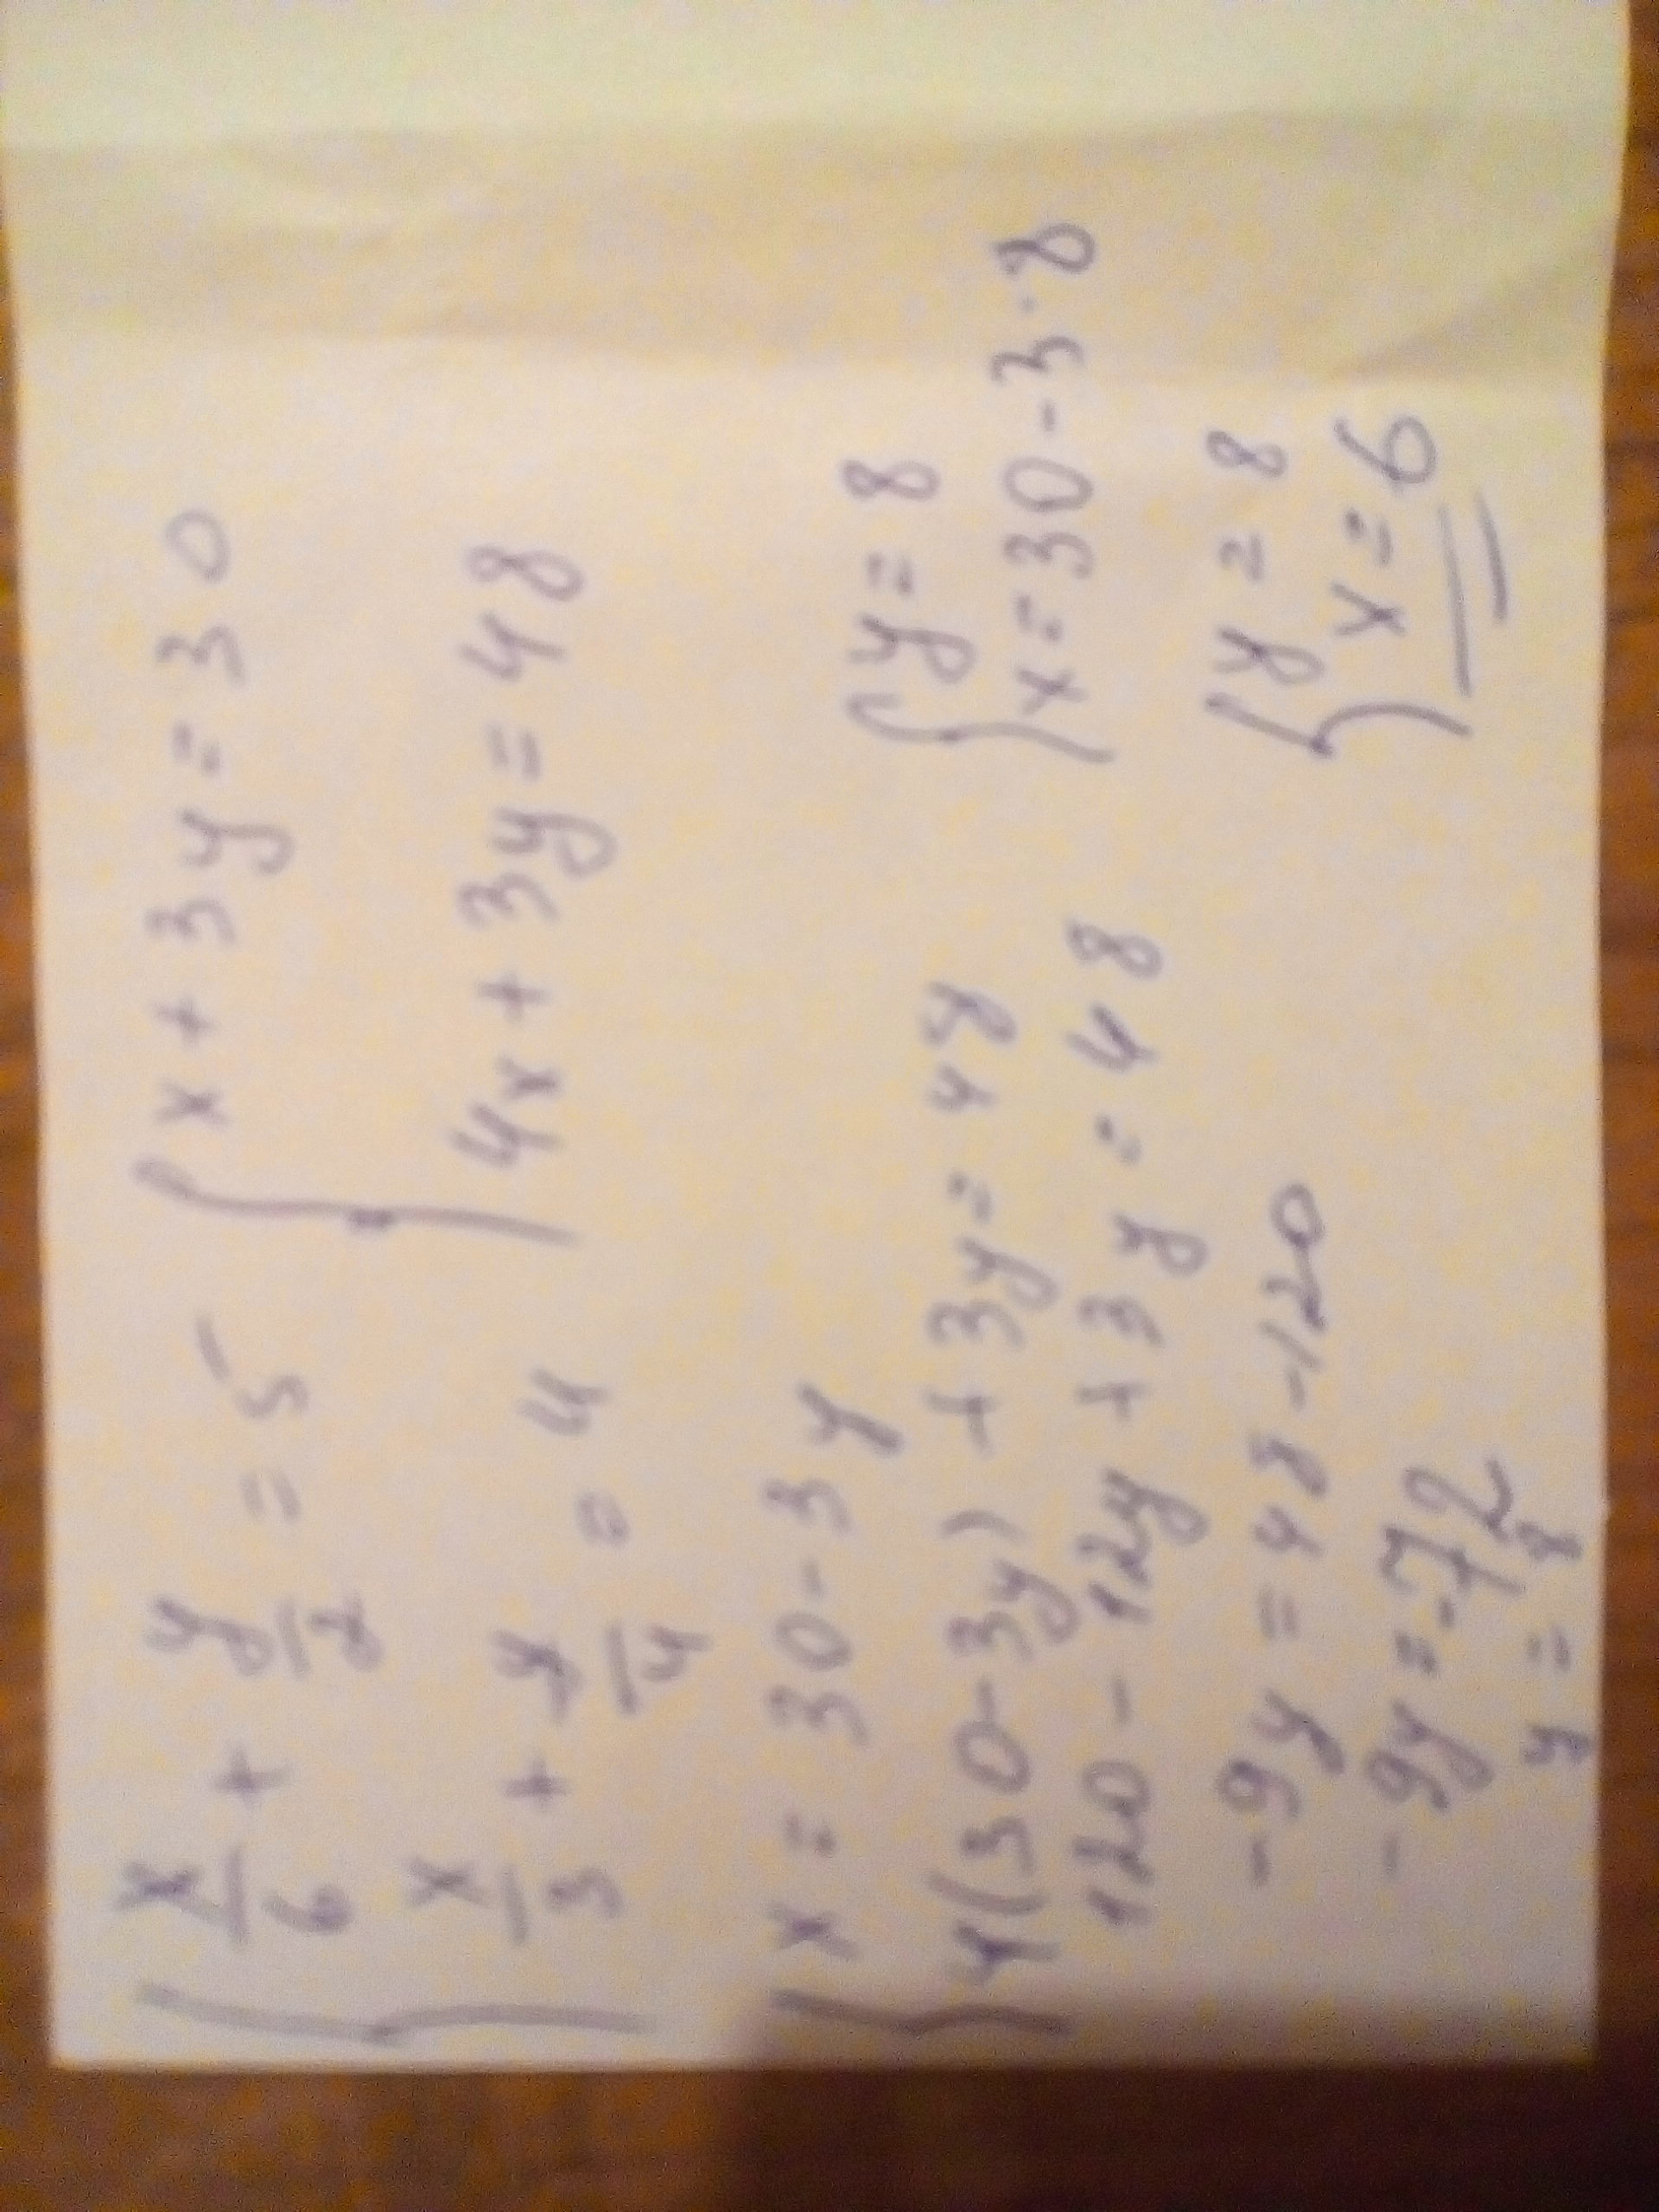 { x/6 + y/2 = 5
x/3 + y/4 = 4
{ x + 3y = 30
4x + 3y = 48
{ x = 30 - 3y
4(30-3y) + 3y = 48
120 - 12y + 3y = 48
-9y = 48 -120
-9y = -72
y = 8
{ y = 8
x = 30 - 3·8
{ y = 8
x = 6